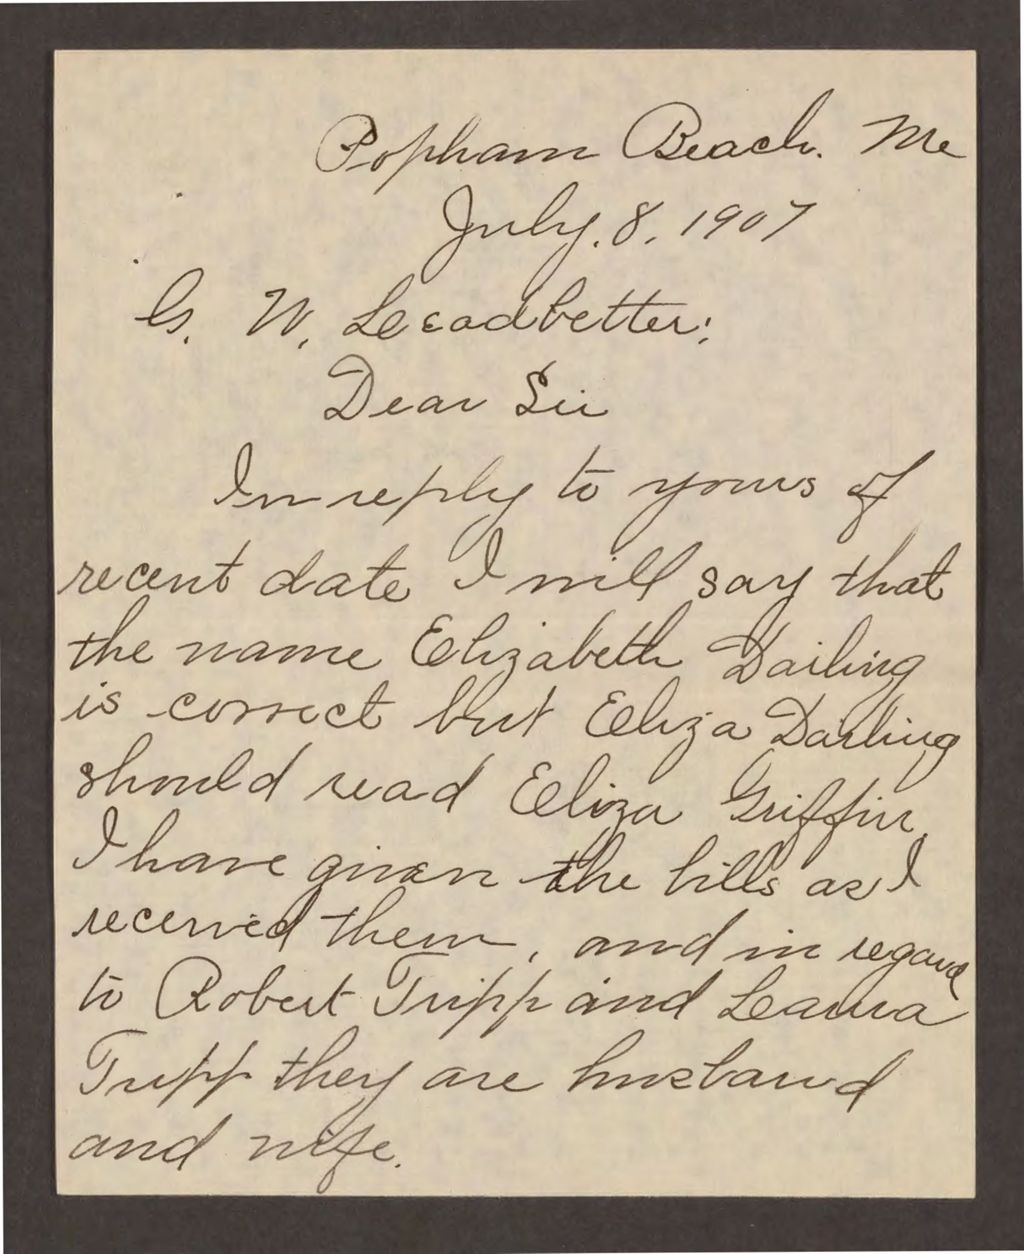 Popham Beach. Me
July. 8, 1907
G. W. Leeadbetter;
Dear Sir
In reply to yours of
recent date I will say that
the name Elizabeth Darling
is correct but Eliza Darling
should read Eliza Griffin,
I have given the bills as I
received them, and in regard
to Robert Tripp and Leaura
Tripp they are husband
and wife.